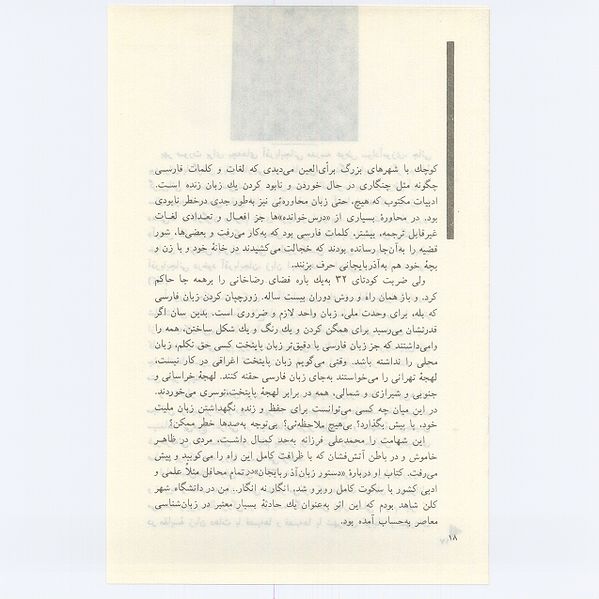 کوچك با شهرهای بزرگ برأی‌العین می‌دیدی که لغات و کلمات فارسی
چگونه مثل چنگاری در حال خوردن و نابود کردن یك زبان زنده است.
ادبیات مکتوب که هیچ، حتی زبان محاوره‌ئی نیز به‌طور جدی درخطر نابودی
بود. در محاورهٔ بسیاری از «درس‌خوانده»‌ها جز افعال و تعدادی لغات
غیرقابل ترجمه، بیشتر، کلمات فارسی بود که به‌کار می‌رفت و بعضی‌ها، شور
قضیه را به‌آن‌جا رسانده بودند که خجالت می‌کشیدند در خانهٔ خود و با زن و
بچهٔ خود هم به‌آذربایجانی حرف بزنند.
ولی ضربت کودتای ۳۲ به‌یك باره فضای رضاخانی را برهمه جا حاکم
کرد. و باز همان راه و روش دوران بیست ساله. زورچپان کردن زبان فارسی
که بله، برای وحدت ملی، زبان واحد لازم و ضروری است. بدین سان اگر
قدرتشان می‌رسید برای همگن کردن و یك رنگ و یك شکل ساختن، همه را
وامی‌داشتند که جز زبان فارسی یا دقیق‌تر زبان پایتخت کسی حق تکلم، زبان
محلی را نداشته باشد. وقتی می‌گویم زبان پایتخت اغراقی در کار نیست،
لهجهٔ تهرانی را می‌خواستند به‌جای زبان فارسی حقنه کنند. لهجهٔ خراسانی و
جنوبی و شیرازی و شمالی، همه در برابر لهجهٔ پایتخت،توسری می‌خوردند.
در این میان چه کسی می‌توانست برای حفظ و زنده نگهداشتن زبان ملیت
خود، پا پیش بگذارد؟ بی‌هیچ ملاحظه‌ئی؟ بی‌توجه به‌صدها خطر ممکن؟
این شهامت را محمدعلی فرزانه به‌حد کمال داشت، مردی در ظاهر
خاموش و در باطن آتش‌فشان که با ظرافت کامل این راه را می‌کوبید و پیش
می‌رفت. کتاب او دربارهٔ «دستور زبان‌آذربایجان»‌درتمام محافل مثلاً علمی و
ادبی کشور با سکوت کامل روبرو شد، انگار نه انگار.. من در دانشگاه شهر
کلن شاهد بودم که این اثر به‌عنوان یك حادثهٔ بسیار معتبر در زبان‌شناسی
معاصر به‌حساب آمده بود.
۱۸